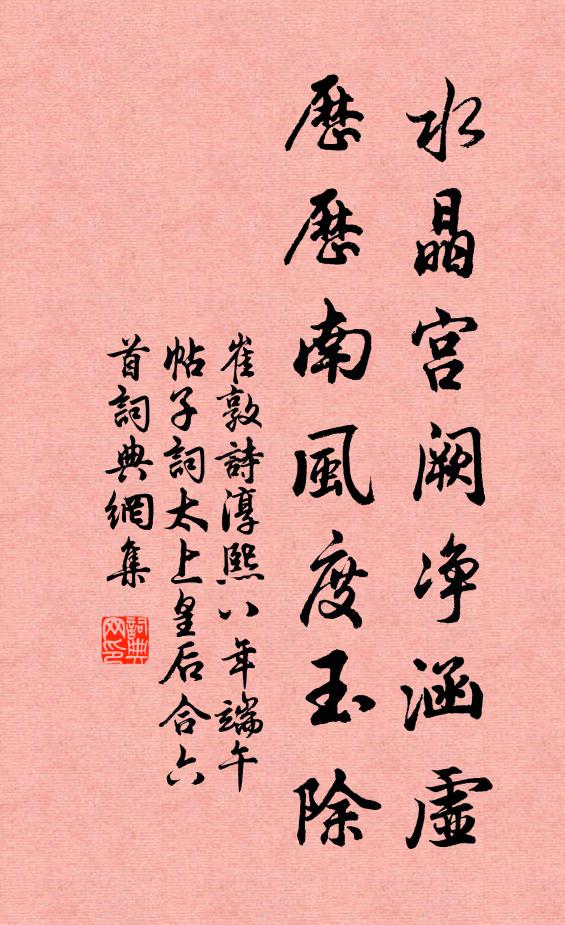 水晶宮闕净涵虛
歷歷南風度玉除
崔敦詩淳熙八年端午
帖子詞太上皇后合六
首詞典網集
詞典网印